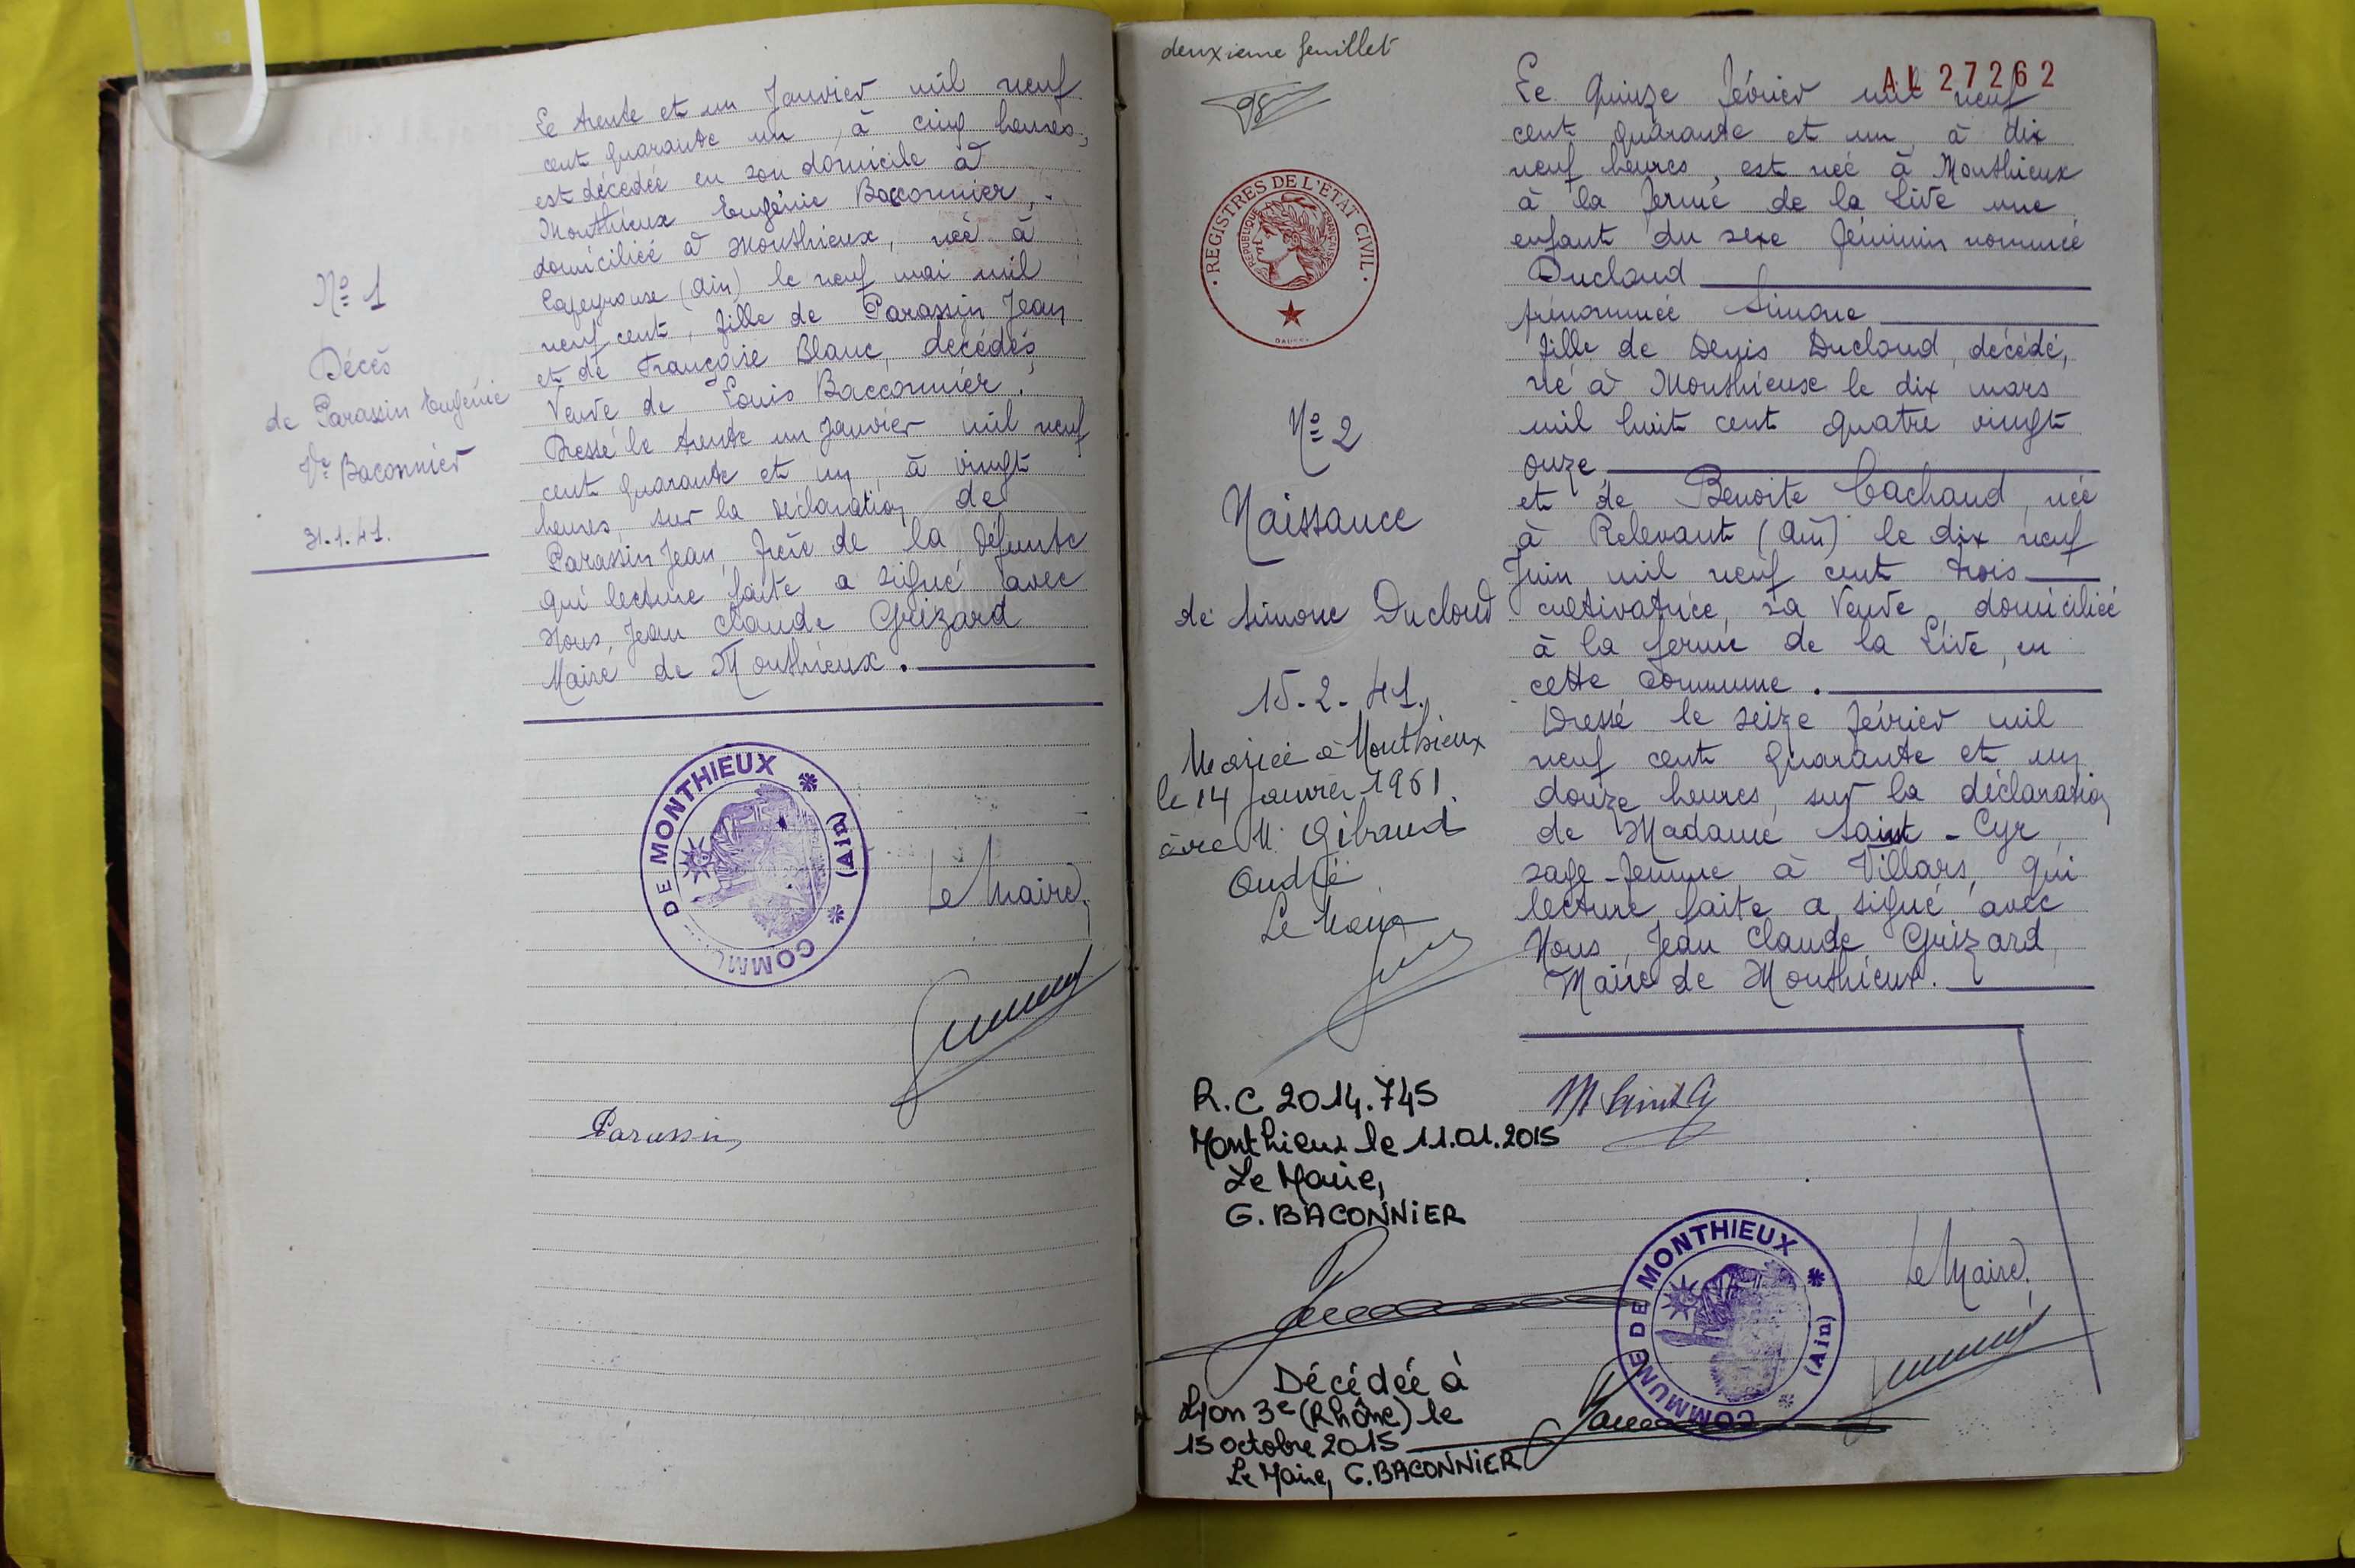 Nº 1
Décès
de Parassin Eugénie
Vve Baconnier
31.1.41.
Le trente et un Janvier mil neuf
cent quarante un, à cinq heures,
est décédée en son domicile à
Monthieux Eugénie Bacconnier,
domiciliée à Monthieux, née à
Lapeyrouse (Ain) le neuf mai mil
neuf cent, fille de Parassin Jean
et de Françoise Blanc, décédés
Veuve de Louis Bacconnier.
Dressé le trente un Janvier mil neuf
cent quarante et un à vingt
heures, sur la déclaration de
Parassin Jean, frère de la défunte
qui lecture faite a signé avec
Nous, Jean Claude Grizard
Maire de Monthieux.
COMMUNE DE MONTHIEUX (Ain)
Le Maire,
Parassin
deuxieme feuillet
REGISTRES DE L'ETAT CIVIL
REPUBLIQUE FRANÇAISE
Nº 2
Naissance
de Simone Ducloud
15-2-41.
Mariée à Monthieux
le 14 janvier 1961
avec M. Gibraud
André
Le Maire
R.C 2014.745
Monthieux le 11.01.2015
Le Maire,
G. BACONNIER
Décédée à
Lyon 3e (Rhône) le
15 octobre 2015
Le Maire, G. BACONNIER
AL 27262
Le quinze février mil neuf
cent quarante et un, à dix
neuf heures, est née à Monthieux
à la ferme de la Live une
enfant du sexe féminin nommée
Ducloud
prénommée Simone
fille de Denis Ducloud, décédé,
né à Monthieux le dix mars
mil huit cent quatre vingt
onze
et de Benoite Cachaud, née
à Relevant (Ain) le dix neuf
Juin mil neuf cent trois
cultivatrice, sa Veuve, domiciliée
à la ferme de la Live, en
cette commune.
Dressé le seize février mil
neuf cent quarante et un
douze heures, sur la déclaration
de Madame Saint-Cyr,
sage-femme à Villars, qui
lecture faite a signé avec
Nous, Jean Claude Grizard,
Maire de Monthieux.
COMMUNE DE MONTHIEUX (Ain)
Le Maire,